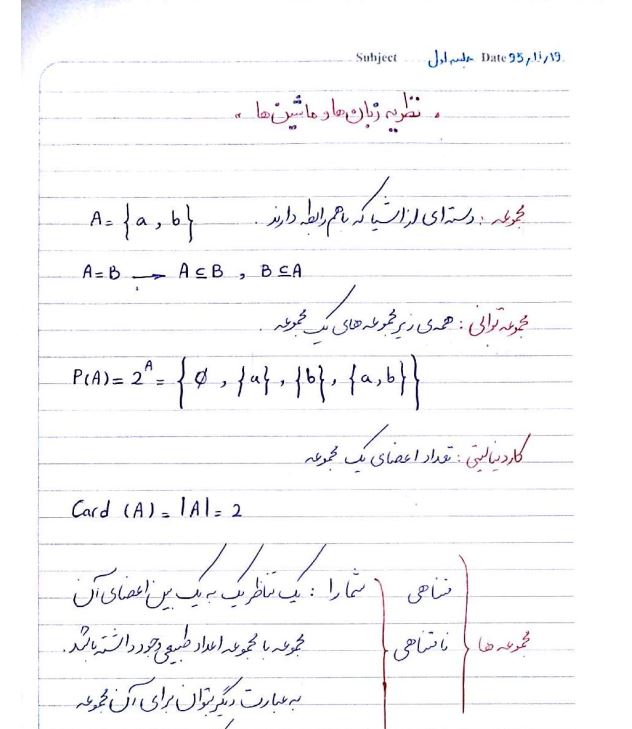 Subject جلسه اول Date 95,11,19
نظریه زبان‌ها و ماشین‌ها
مجموعه : دسته‌ای از اشیا که باهم رابطه دارند . A = {a , b}
A=B → A⊆B , B⊆A
مجموعه توانی : همه‌ی زیر مجموعه های یک مجموعه .
P(A) = 2^A = { ∅ , {a} , {b} , {a,b} }
کاردینالیتی : تعداد اعضای یک مجموعه
Card (A) = |A| = 2
متناهی شمارا : یک تناظر یک به یک بین اعضای آن
مجموعه ها نامتناهی مجموعه با مجموعه اعداد طبیعی وجود داشته باشد .
به عبارت دیگر بتوان برای آن مجموعه